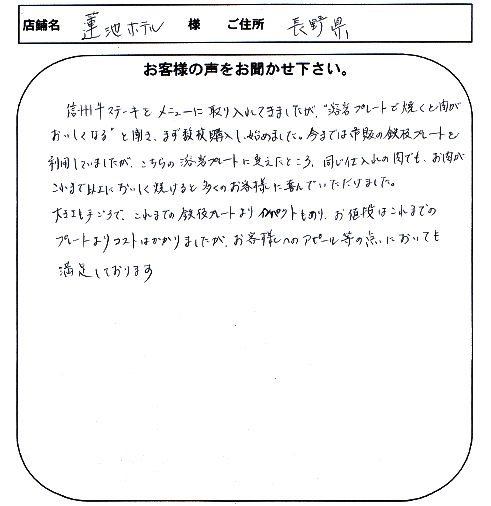 店舗名 蓮池ホテル 様 ご住所 長野県
お客様の声をお聞かせ下さい。
信州牛ステーキをメニューに取り入れてきましたが、"溶岩プレートで焼くと肉が
おいしくなる"と聞き、まず数枚購入し、始めました。今までは市販の鉄板プレートを
利用していましたが、こちらの溶岩プレートに変えたところ、同じ仕入れの肉でも、お肉が
これまで以上においしく焼けると多くのお客様に喜んでいただけました。
大きさも手ごろで、これまでの鉄板プレートよりインパクトもあり、お値段はこれまでの
プレートよりコストはかかりましたが、お客様へのアピール等の点においても
満足しております